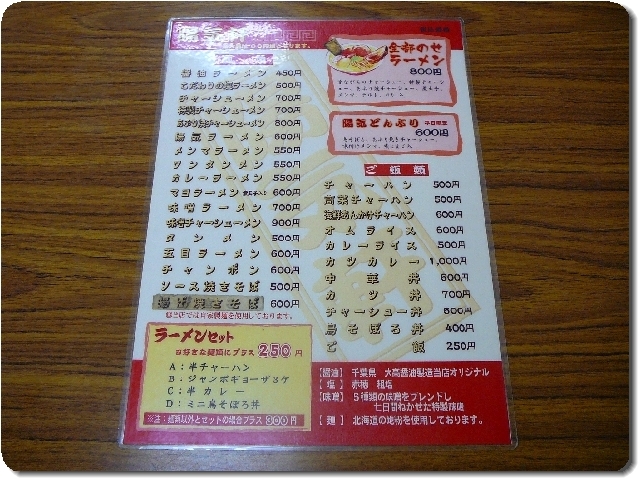 全部のせ
ラーメン
800円
醤油ラーメン 450円
こだわりの塩ラーメン 500円
チャーシューメン 700円
特製チャーシューメン 700円
あぶり焼チャーシューメン 800円
陽気ラーメン 600円
メンマラーメン 550円
ワンタンメン 550円
カレーラーメン 550円
マヨラーメン 600円
味噌ラーメン 700円
味噌チャーシューメン 900円
タンメン 500円
五目ラーメン 600円
チャンポン 600円
ソース焼きそば 500円
揚げ焼きそば 600円
当店では自家製麺を使用しております。
陽気どんぶり 平日限定
600円
ご飯類
チャーハン 500円
高菜チャーハン 500円
海鮮あんかけチャーハン 600円
オムライス 600円
カレーライス 500円
カツカレー 1,000円
中華丼 600円
カツ丼 700円
チャーシュー丼 600円
鳥そぼろ丼 400円
ご飯 250円
ラーメンセット
お好きな麺類にプラス 250円
A:半チャーハン
B:ジャンボギョーザ3ケ
C:半カレー
D:ミニ鳥そぼろ丼
※注:麺類以外とセットの場合プラス 300円
【醤油】 千葉県 大高醤油製造当店オリジナル
【塩】 赤穂 粗塩
【味噌】 5種類の味噌をブレンドし
七日間ねかせた特製味噌
【麺】 北海道の地粉を使用しております。